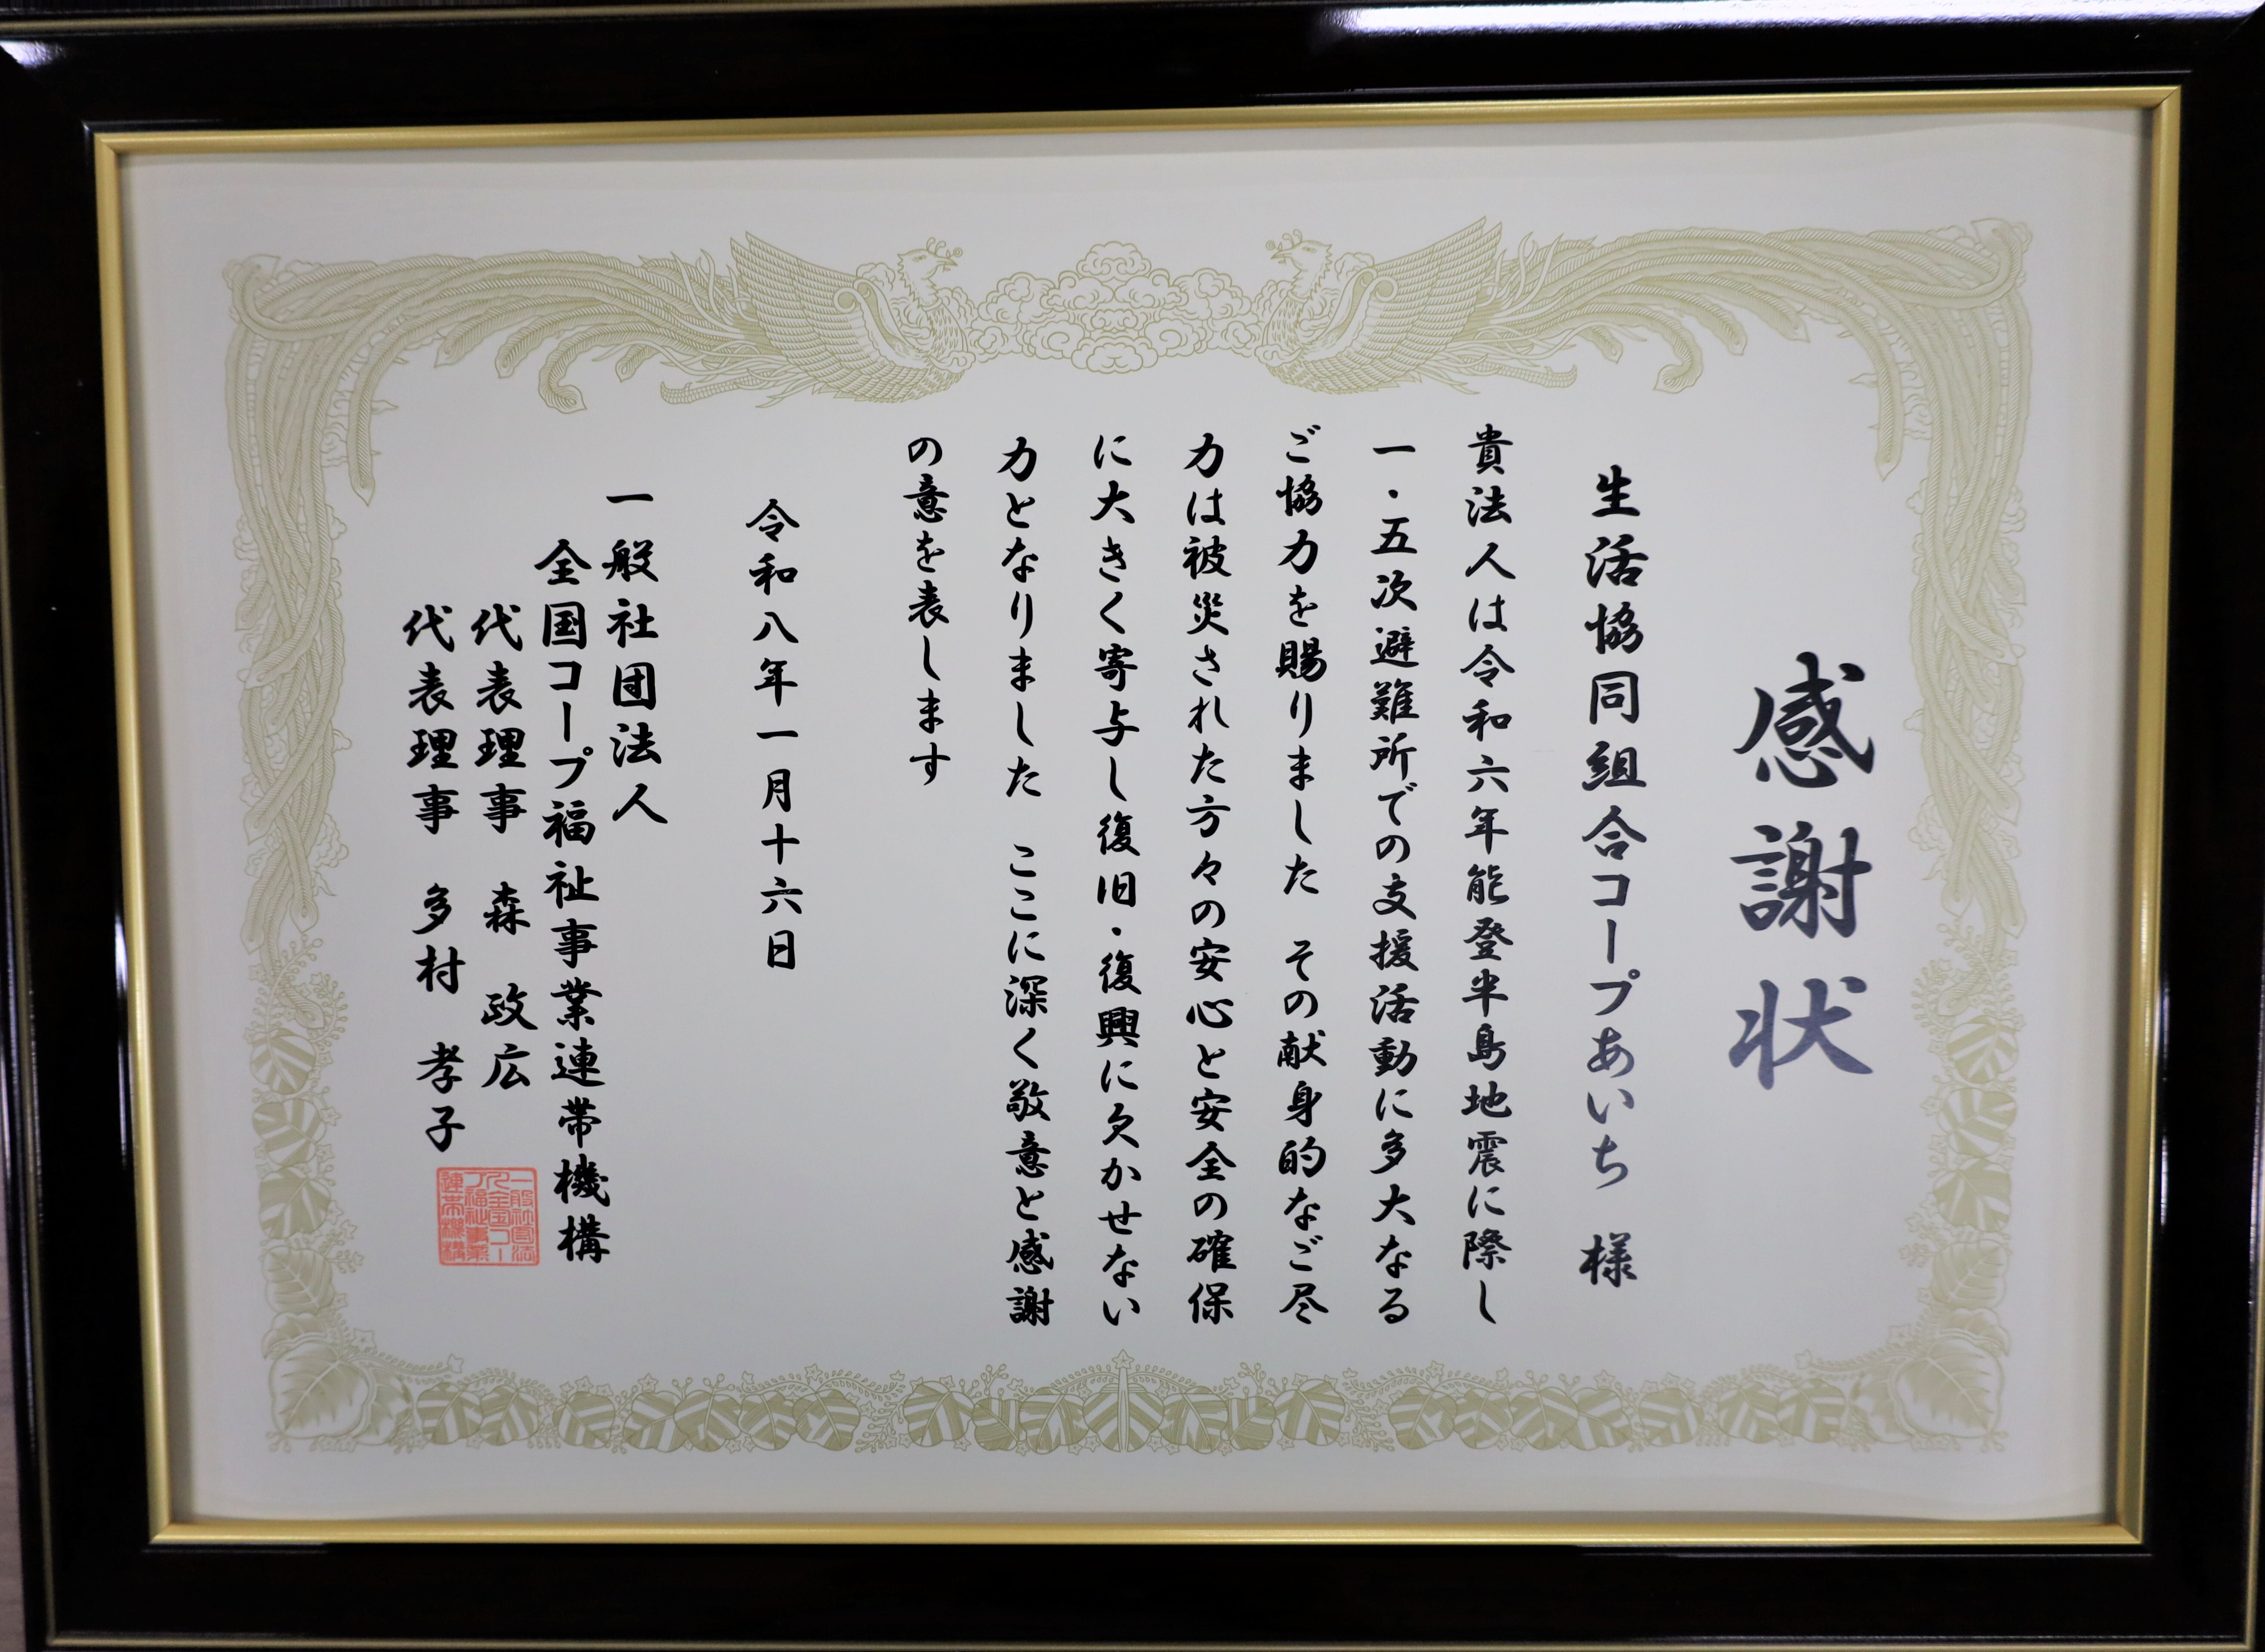 感謝状
生活協同組合コープあいち 様
貴法人は令和六年能登半島地震に際し
一・五次避難所での支援活動に多大なる
ご協力を賜りました その献身的なご尽
力は被災された方々の安心と安全の確保
に大きく寄与し復旧・復興に欠かせない
力となりました ここに深く敬意と感謝
の意を表します
令和八年一月十六日
一般社団法人
全国コープ福祉事業連帯機構
代表理事 森 政広
代表理事 多村 孝子
一般社団法
人全国コー
プ福祉事業
連帯機構